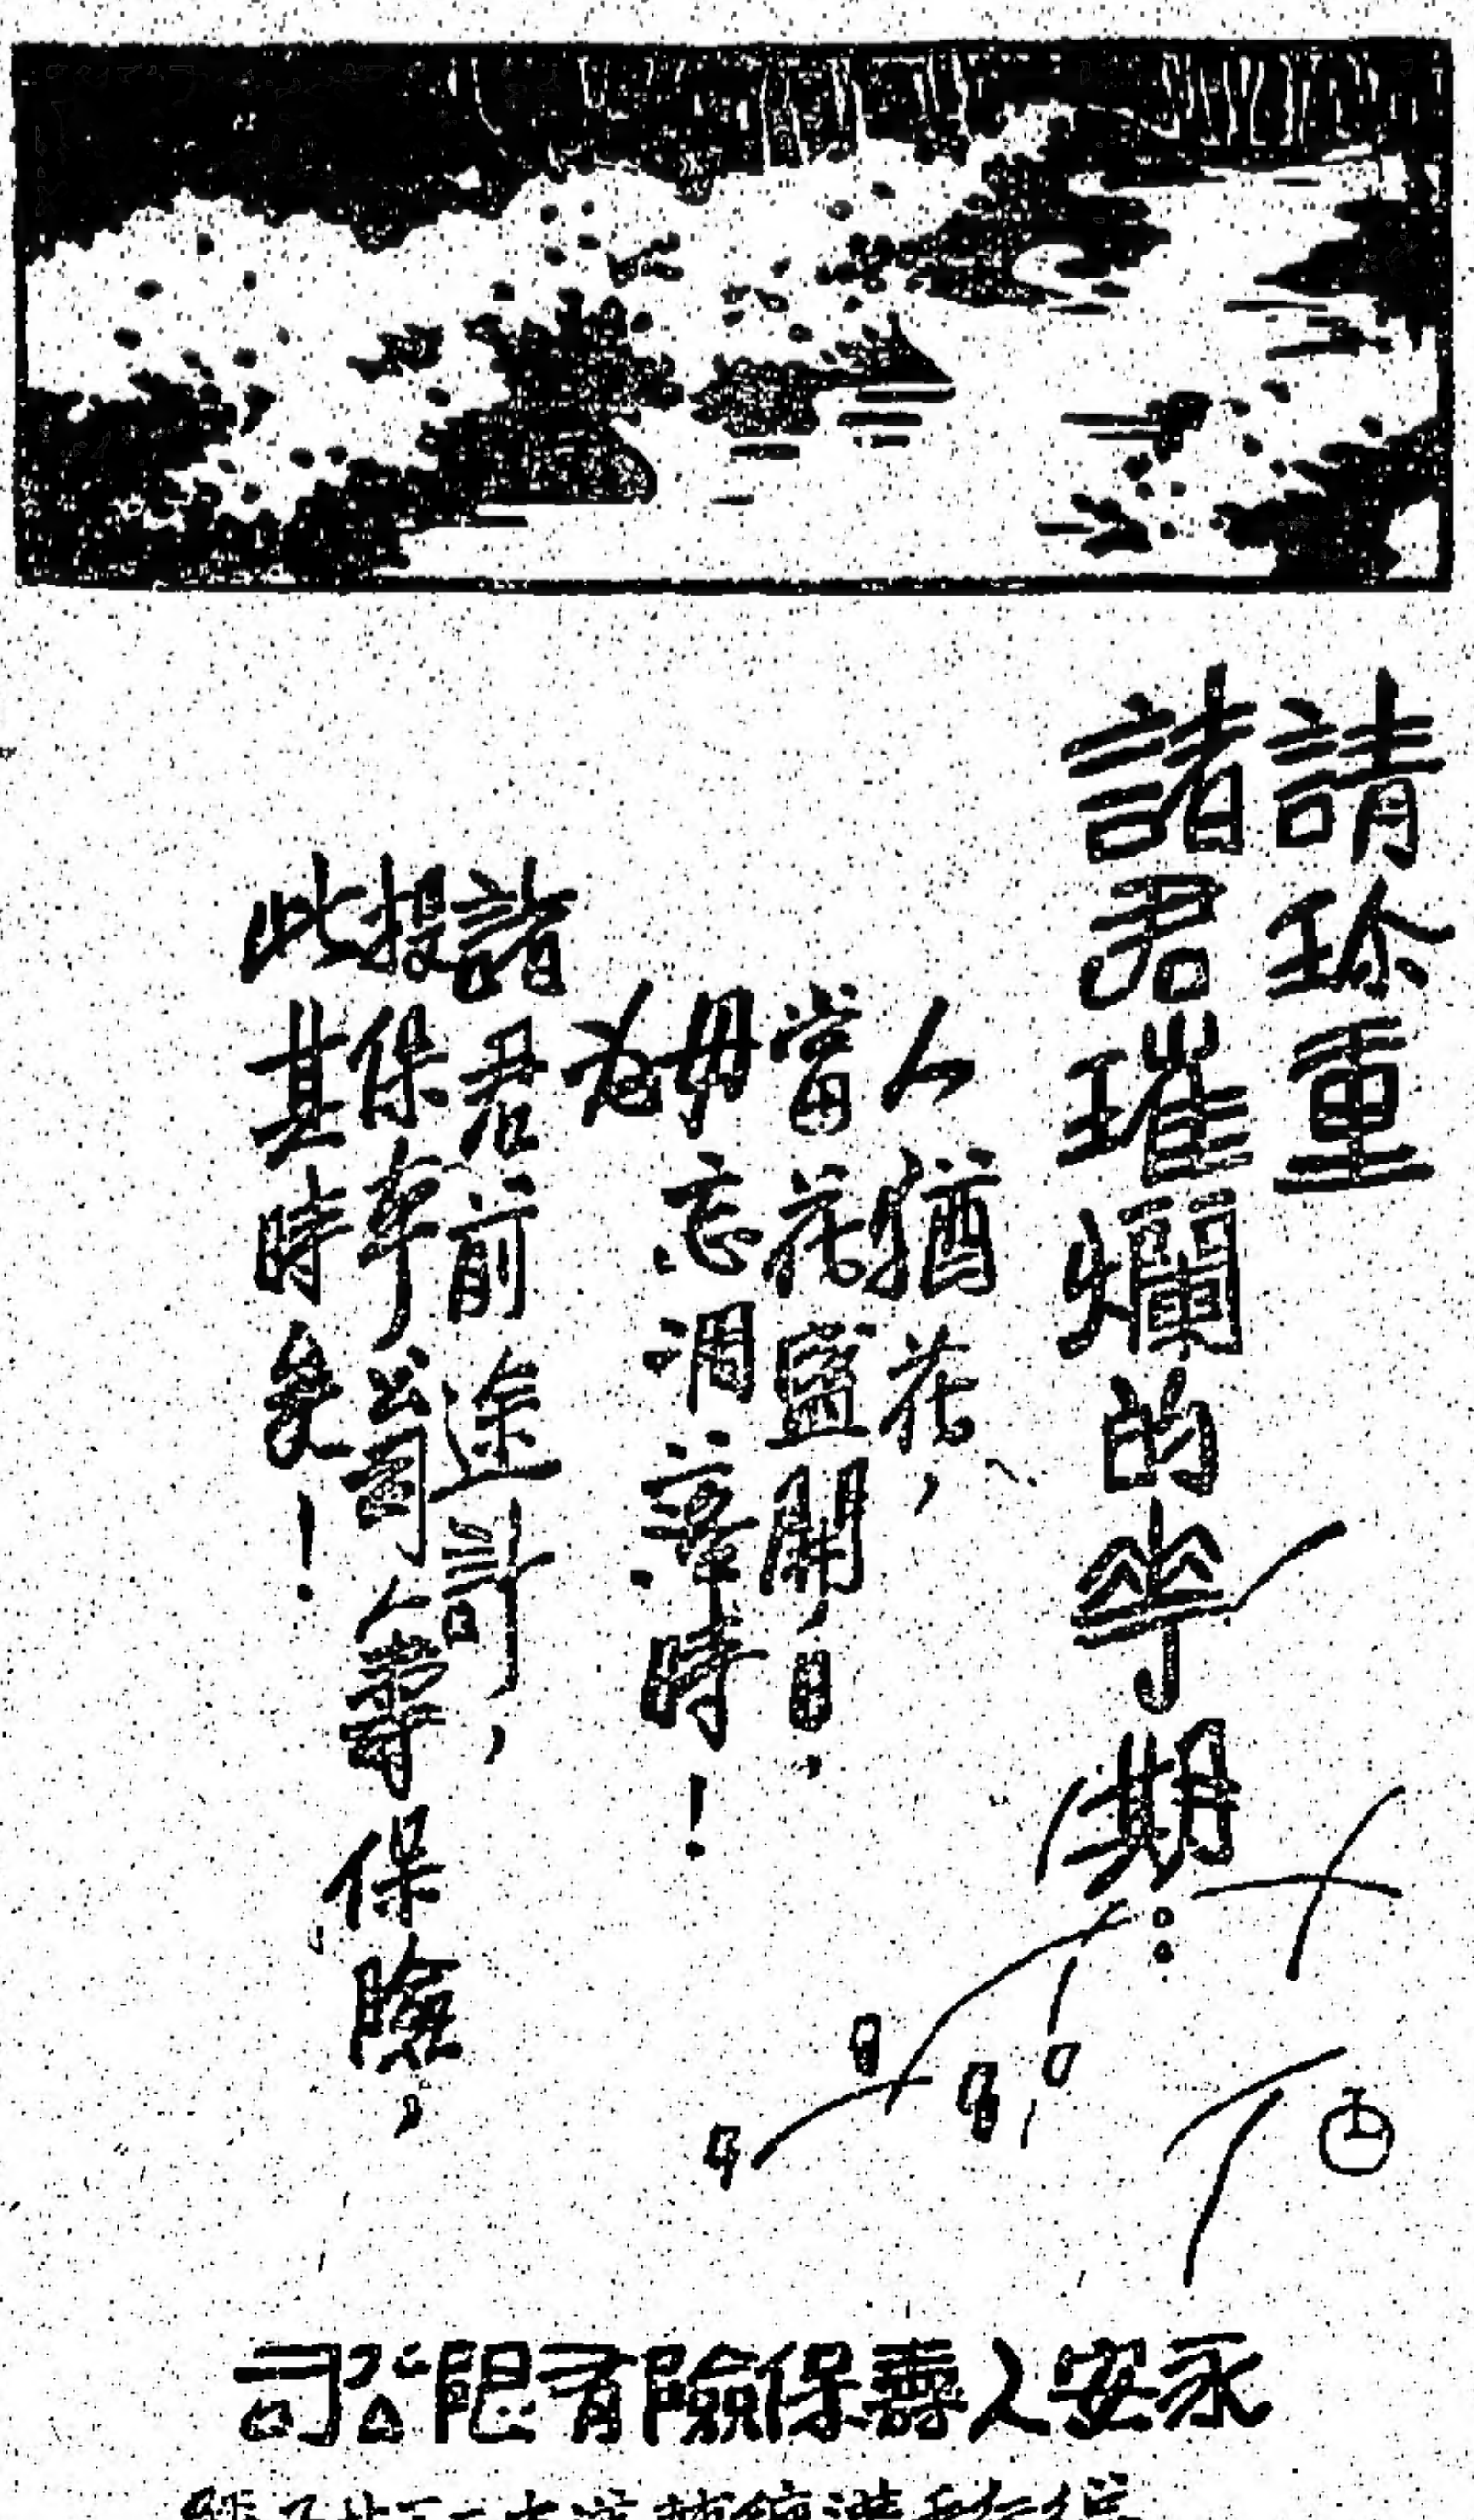 請珍重
諸君璀爛的華期:
人猶花,
當花盛開日,
毋忘凋落時!
為
諸君前途計,
投保本公司人壽保險,
此其時矣!
永安人壽保險有限公司